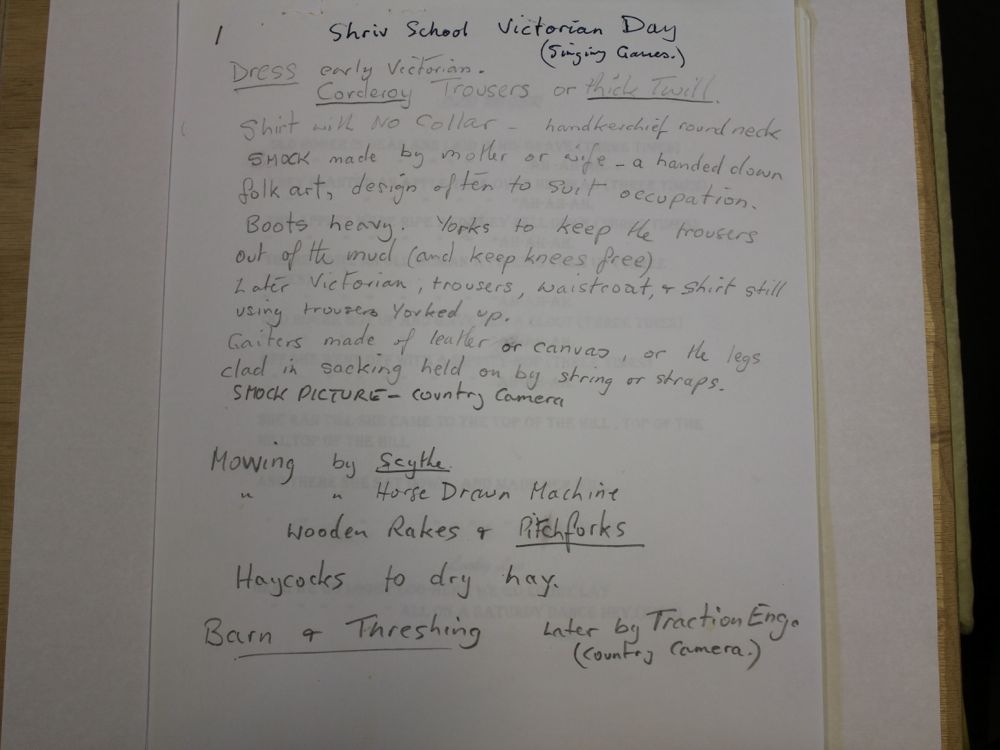 1 Shriv School Victorian Day
(Singing Games.)
Dress early Victorian.
Corderoy Trousers or thick Twill.
Shirt with No Collar - handkerchief round neck
SMOCK made by mother or wife - a handed down
folk art, design often to suit occupation.
Boots heavy. Yorks to keep the trousers
out of the mud (and keep knees free)
Later Victorian, trousers, waistcoat, & shirt still
using trousers Yorked up.
Gaiters made of leather or canvas, or the legs
clad in sacking held on by string or straps.
SMOCK PICTURE - Country Camera
SHE RAN TILL SHE CAME TO THE TOP OF THE HILL , TOP OF THE
HILL TOP OF THE HILL
Mowing by Scythe.
" " Horse Drawn Machine
Wooden Rakes & Pitchforks
Haycocks to dry hay.
Barn & Threshing Later by Traction Eng.
(Country Camera.)